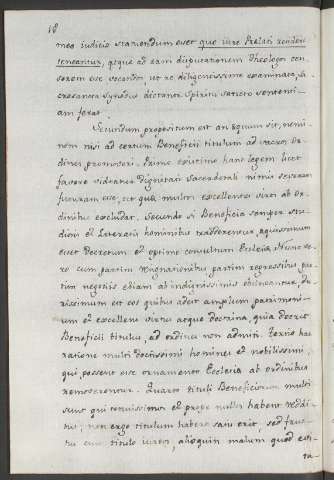 18
meo iudicio statuendum esset quo iure Prelati residere
teneantur, atque ad eam disputationem Theologi cen-
sorem esse vocandos, ut re diligentissime examinata, sa-
crosancta Synodus dictante Spiritu sancto sententi-
am ferat.
Secundum propositum est an equum sit, nemi-
nem nisi ad certum Beneficii titulum ad sacros Or-
dines promoveri. Primo existimo hanc legem licet
favore videatur dignitati sacerdotali nimis severam
futuram esse, et quae multos excellentes viros ab Or-
dinibus excludat. Secundo si Beneficia semper stu-
diosis et Literatis hominibus traderentur, aequissimum
esset Decretum et optime consultum Ecclesiae. Nunc ve-
ro cum partim resignationibus partim regressibus par-
tim negotiis etiam ab indignissimis obtineantur, du-
rissimum est eos quibus adest amplum patrimoni-
um et excellens virtus atque doctrina, quia deest
Beneficii titulus, ad ordines non admitti. Tertio hac
ratione multi doctissimi homines et nobilissimi,
qui possent esse ornamento Ecclesiae ab ordinibus
removerentur. Quarto tituli Beneficiorum multi
sunt qui tenuissimos et prope nullos habent reddi-
tus; non ergo titulum habere satis erit, sed fruc-
tus eius titulo iunctos, alioquin malum quod evi-
ta-